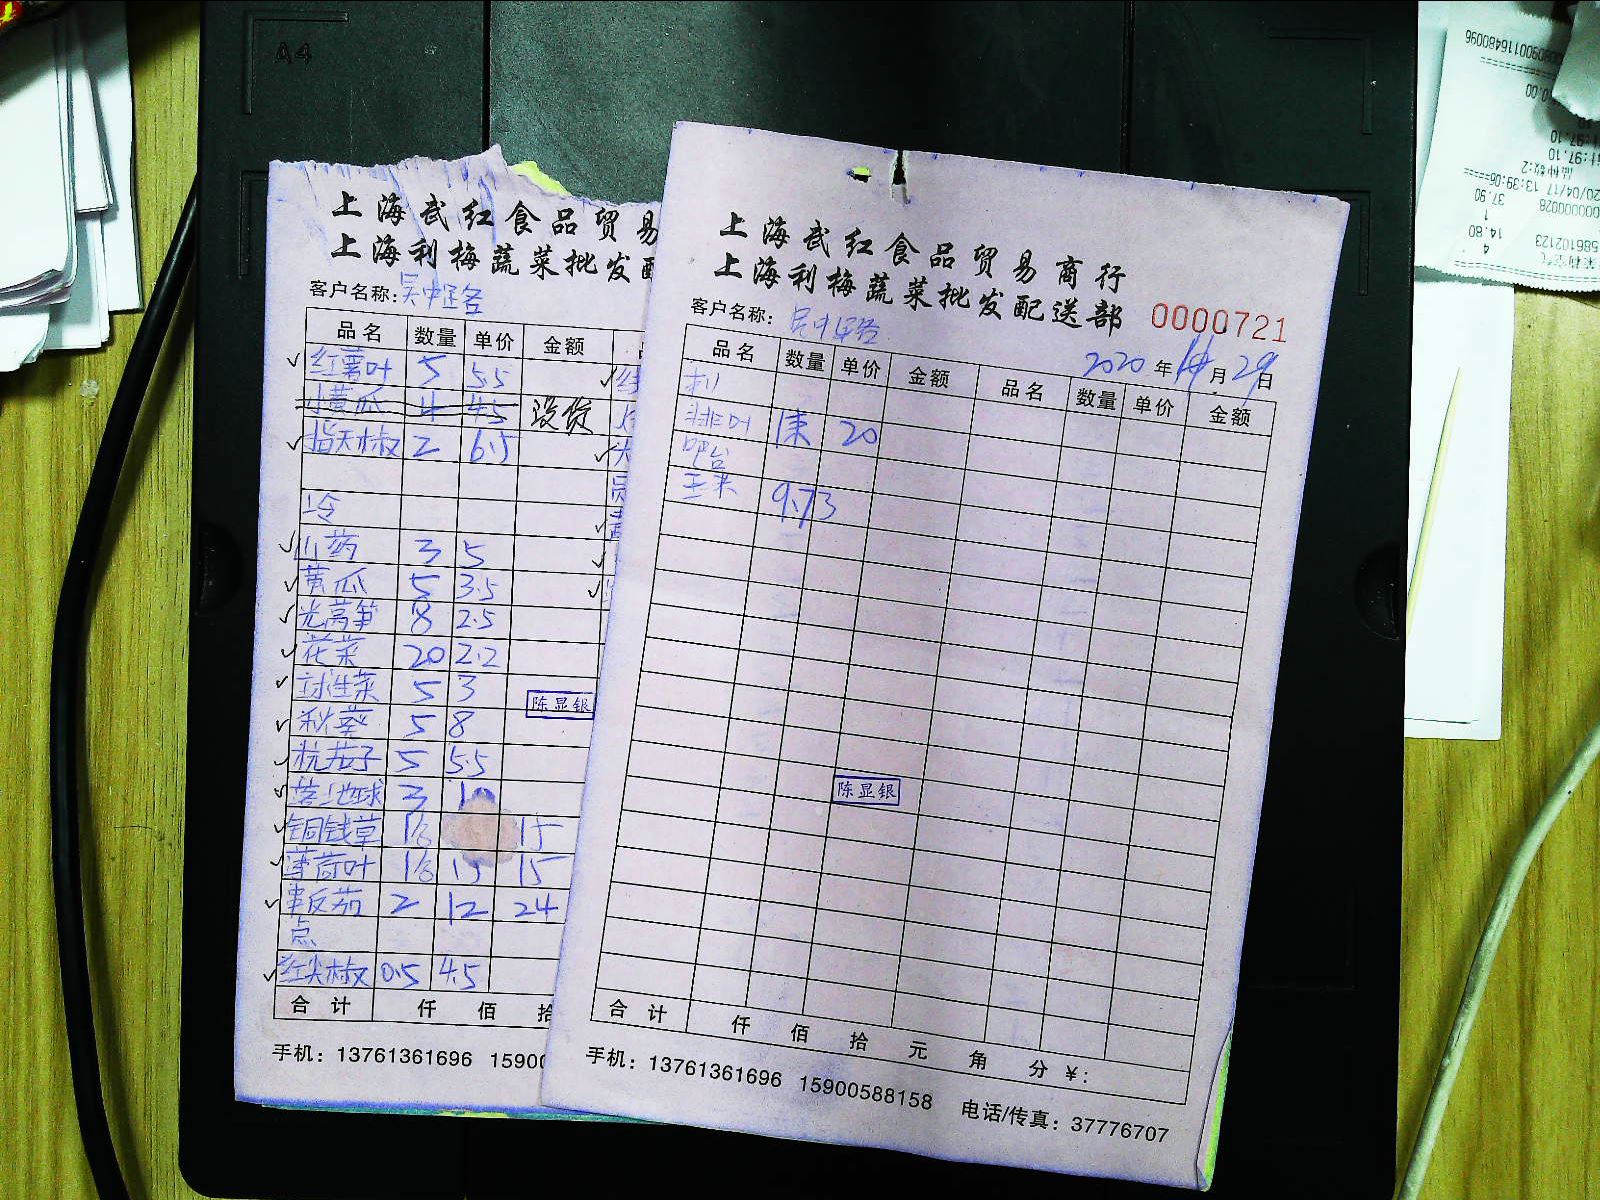 A4
上海武红食品贸易
上海利梅蔬菜批发配
客户名称:
品名 数量 单价 金额
红薯叶 5 5.5
小黄瓜 4 4.5 没货
指天椒 2 6.5
冷
山药 3 5
黄瓜 5 3.5
光莴笋 8 2.5
花菜 20 2.2
球生菜 5 3
秋葵 5 8
杭茄子 5 5.5
落地球 3
铜钱草 15
薄荷叶 15 15
串反茄 2 12 24
点
红尖椒 0.5 4.5
合计 仟 佰 拾
手机: 13761361696 15900
陈显银
上海武红食品贸易商行
上海利梅蔬菜批发配送部 0000721
客户名称:
2020 年 月 29 日
品名 数量 单价 金额 品名 数量 单价 金额
20
吧台
9.73
陈显银
合计 仟 佰 拾 元 角 分 ¥:
手机: 13761361696 15900588158 电话/传真: 37776707
20/04/17 13:39:06
37.90
14.80
97.10